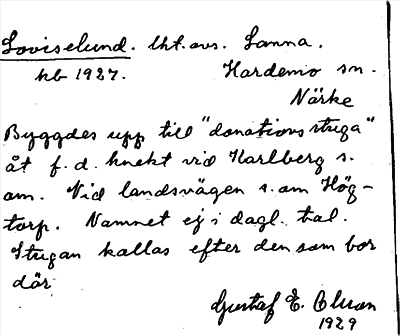 Loviselund. lht. avs. Sanna.
kb 1927. Hardemo sn.
Närke
Byggdes upp till "donationsstuga"
åt f.d. knekt vid Karlberg s.
om. Vid landsvägen s. om Hög-
torp. Namnet ej i dagl. tal.
Stugan kallas efter den som bor
där
Gustaf E. Olsson
1929